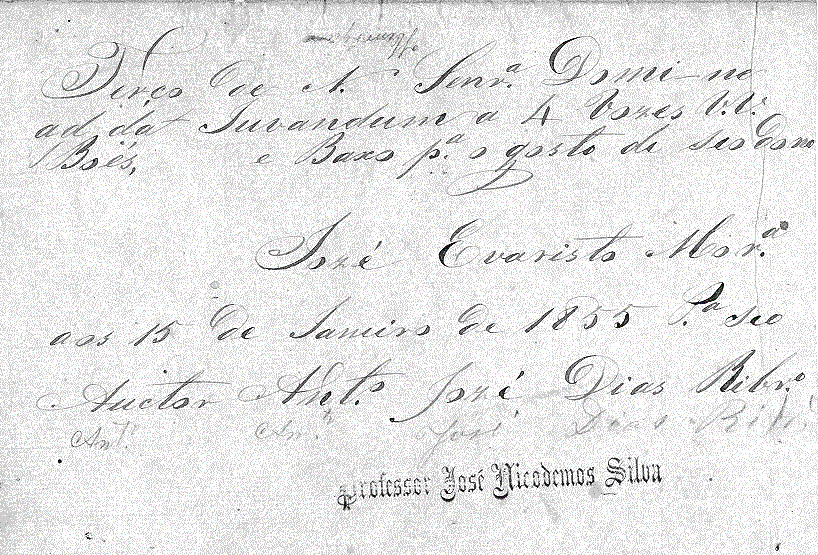 Terço de N. Senr.ª Domi ne
ad da Juvandum a 4 Vozes V.V.
Boës, e Baxo p.ª o gosto di seo dono
Jozé Evaristo Mor.ª
aos 15 de Janeiro de 1855 P.ª seo
Auctor Ant.o Jozé Dias Ribr.o
Ant. An. José Dias Rib
Professor José Nicodemos Silva